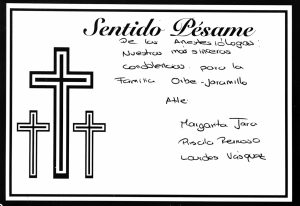 Sentido Pésame
De los Anestesiólogos:
Nuestras más sinceras
condolencias para la
Familia Oribe-Jaramillo
Atte:
Margarita Jara
Priscila Reinoso
Lourdes Vásquez